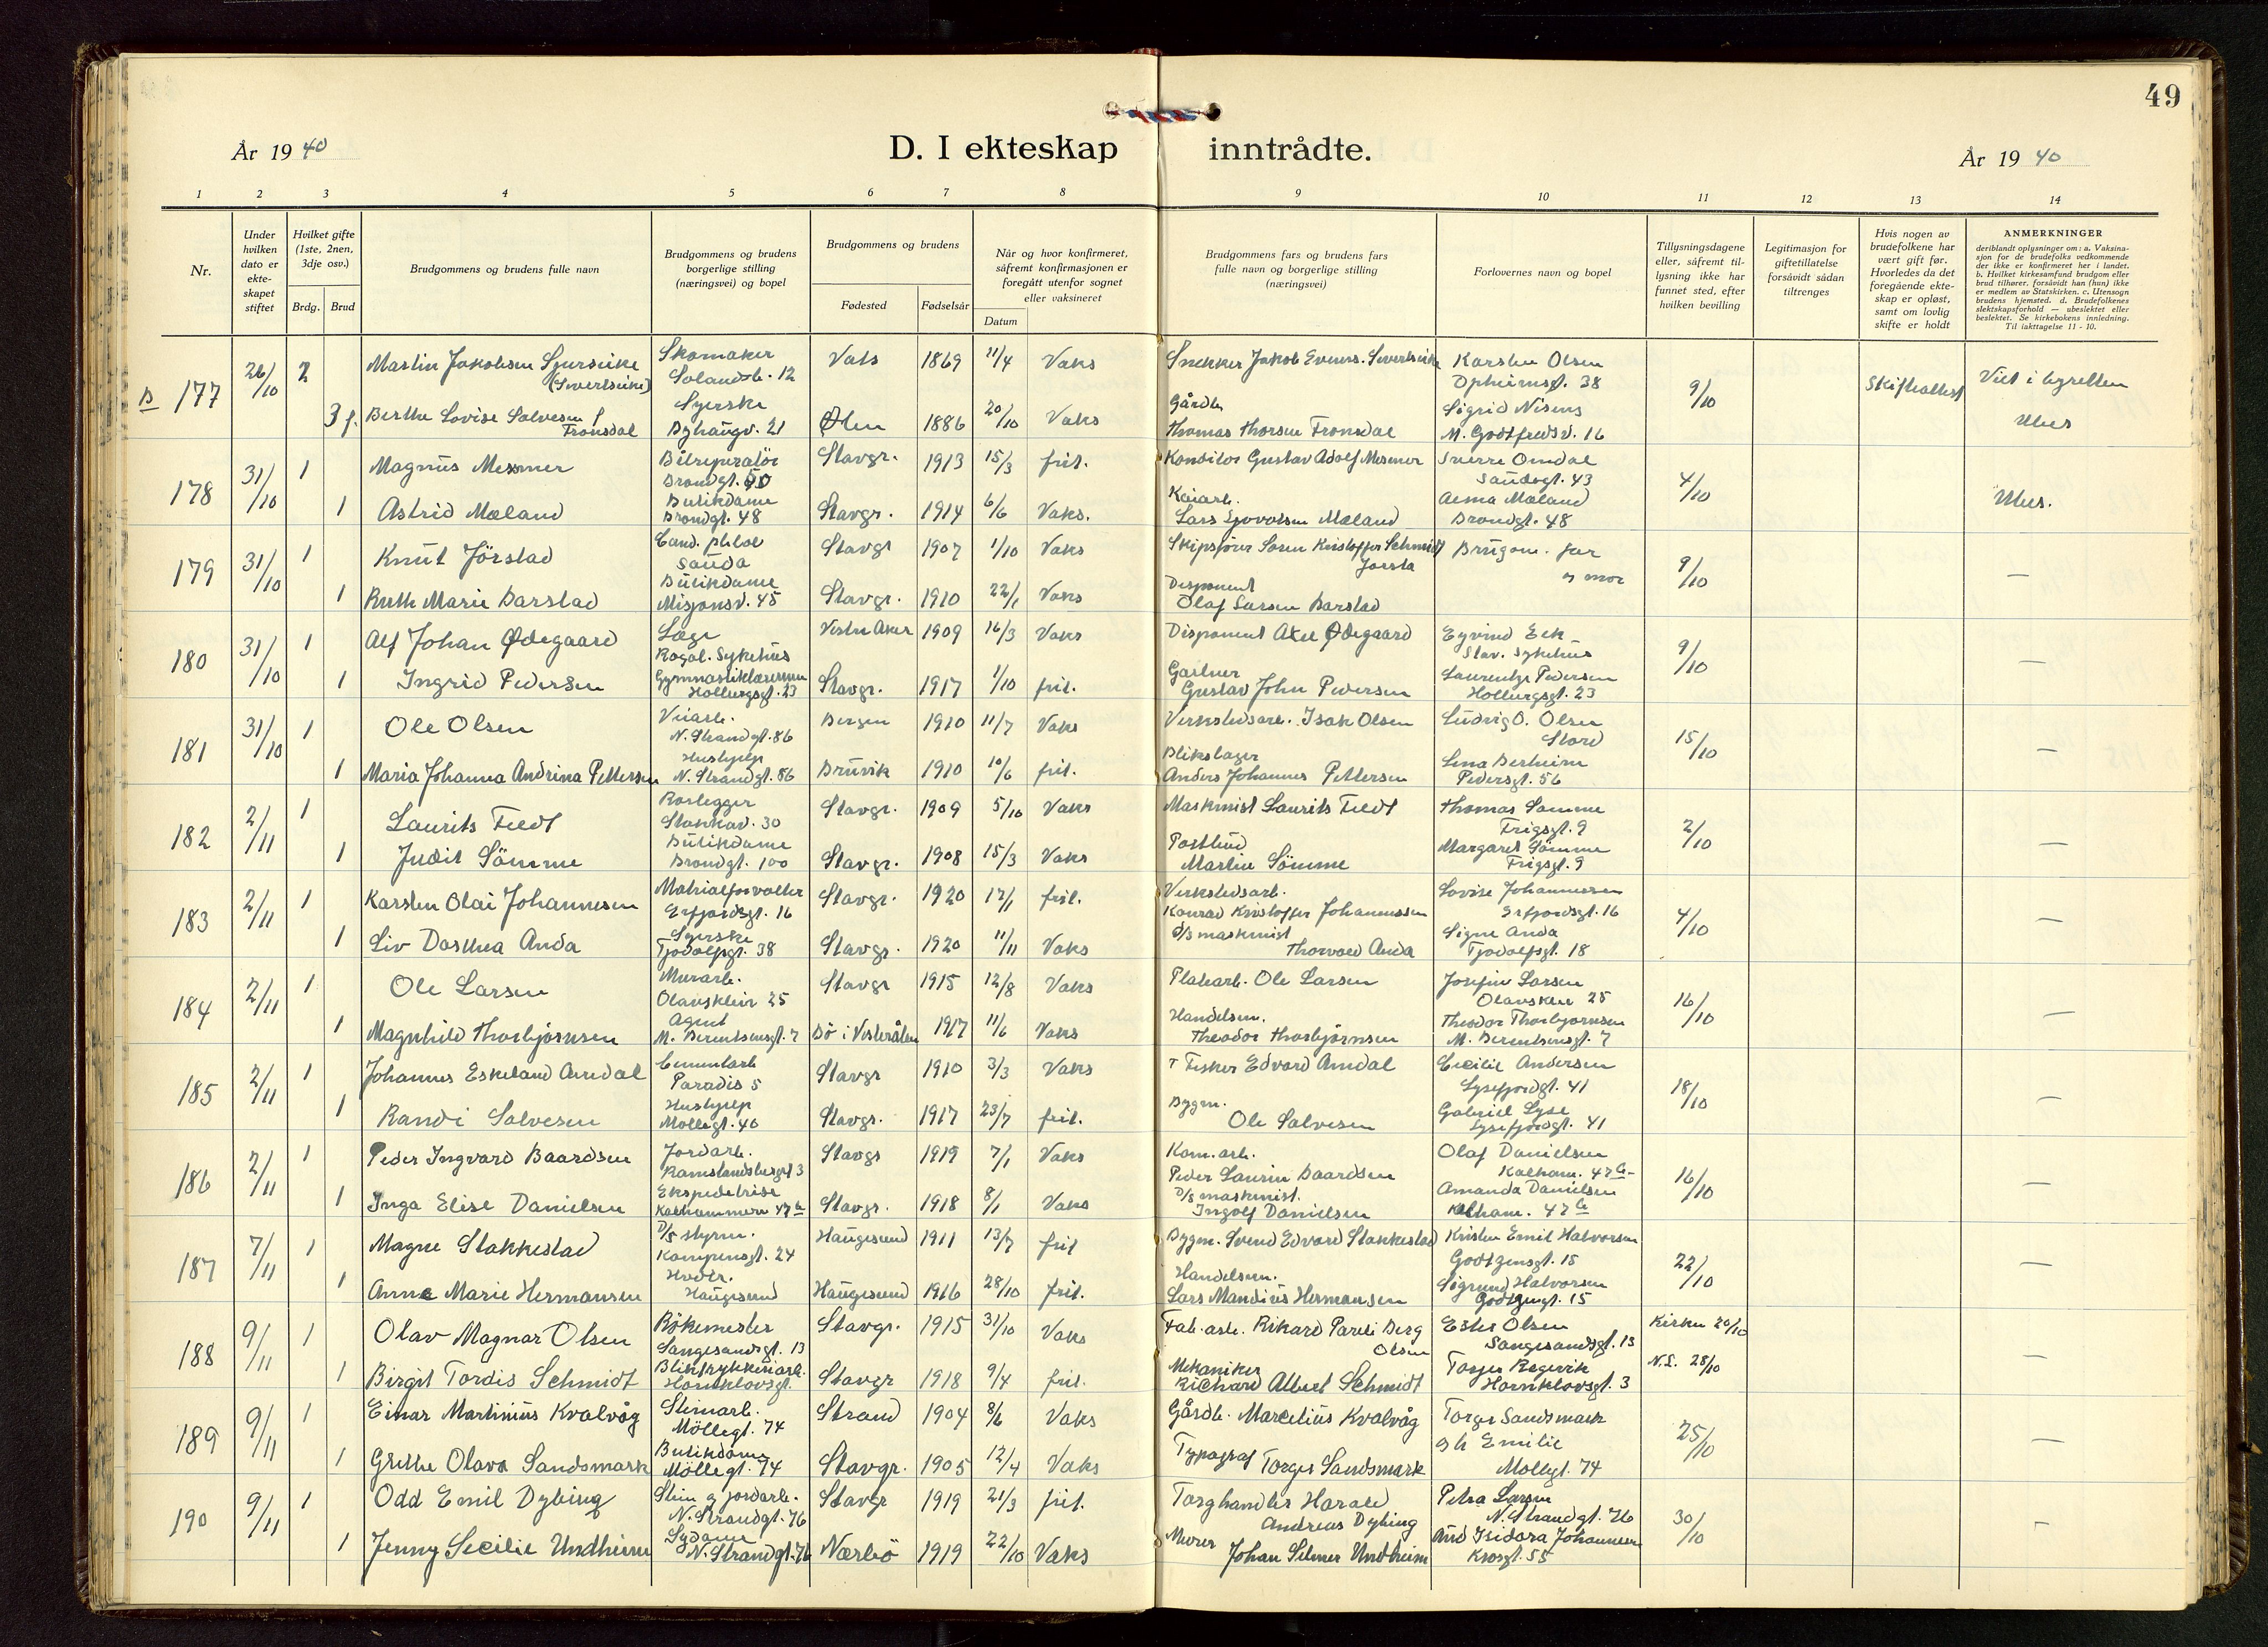 49
År 1940
D. I ekteskap inntrådte.
År 1940
1 2 3 4 5 6 7 8 9 10 11 12 13 14
Nr.
Under hvilken dato er ekte-skapet stiftet
Hvilket gifte (1ste, 2nen, 3dje osv.)
Brdg. Brud
Brudgommens og brudens fulle navn
Brudgommens og brudens borgerlige stilling (næringsvei) og bopel
Brudgommens og brudens
Fødested Fødselsår
Når og hvor konfirmeret, såfremt konfirmasjonen er foregått utenfor sognet eller vaksineret
Datum
Brudgommens fars og brudens fars fulle navn og borgerlige stilling (næringsvei)
Forlovernes navn og bopel
Tillysningsdagene eller, såfremt til-lysning ikke har funnet sted, efter hvilken bevilling
Legitimasjon for giftetillatelse forsåvidt sådan tiltrenges
Hvis nogen av brudefolkene har vært gift før. Hvorledes da det foregående ekte-skap er opløst, samt om lovlig skifte er holdt
ANMERKNINGER
deriblandt oplysninger om: a. Vaksina-sjon for de brudefolks vedkommende der ikke er konfirmeret her i landet. b. Hvilket kirkesamfund brudgom eller brud tilhører, forsåvidt han (hun) ikke er medlem av Statskirken. c. Utensogn brudens hjemsted. d. Brudefolkenes slektskapsforhold — ubeslektet eller beslektet. Se kirkebokens innledning. Til iakttagelse 11 - 10.
B 177 26/10 2 Martin Jakobsen Sjursvike (Sivertsvike) Skomaker Solandsb. 12 Vats 1869 11/4 Vaks Snekker Jakob Karsten Olsen Opheimsg. 38 9/10 Skifteattest Viet i byretten
3 f. Berthe Lovise Salvesen f Fronsdal Syerske Byhaugv. 21 Ølen 1886 20/10 Vaks Gårdb. Thomas Thorsen Fronsdal Sigrid M. Godtfredsv. 16 Ubes
178 31/10 1 Magnus Messmer Bilreparatör Brondgt. 50 Stavgr. 1913 15/3 frit. Konditor Gustav Adolf Messmer Sverre Omdal Saudegt. 43 4/10 Ubes.
1 Astrid Mæland Butikdame Brondgt. 48 Stavgr. 1914 6/6 Vaks. Kaiarb. Lars Mæland Alma Mæland Brondgt. 48
179 31/10 1 Knut Jörstad Cand. philol Sauda Stavgr 1907 1/10 Vaks Skipsfører Soren Kristoffer Schmidt Jorsta Brugom. far og mor 9/10 —
1 Ruth Marie Barstad Butikdame Misjonsv. 45 Stavgr. 1910 22/1 Vaks Disponent Olaf Larsen Barstad
180 31/10 1 Alf Johan Ødegaard Læge Rogal. Sykehus Vestre Aker 1909 16/3 Vaks Disponent Axel Ødegaard Eyvind Eek Stav. Sykehus 9/10 —
1 Ingrid Pedersen Gymnastiklærerinne Hollungsgt. 23 Stavgr. 1917 1/10 frit. Gartner Gustav John Pedersen Laurentze Pedersen Hollungsgt. 23
181 31/10 1 Ole Olsen Veiarb. N. Strandgt. 86 Bergen 1910 11/7 Vaks Verkstedsarb. Isak Olsen Ludvig O. Olsen Stord 15/10 —
1 Maria Johanna Andrina Pettersen Hushjelp N. Strandgt. 86 Bruvik 1910 10/6 frit. Blikslager Anders Johannes Pettersen Lina Berheim Pedersgt. 56
182 2/11 1 Laurits Feldt Rorlegger Stokkav. 30 Stavgr. 1909 5/10 Vaks Maskinist Laurits Feldt Thomas Somme Frigsgt. 9 2/10 —
1 Judit Sömme Butikdame Brondgt. 100 Stavgr. 1908 15/3 Vaks Postbud Martin Sömme Margaret Sömme Frigsgt. 9
183 2/11 1 Karsten Olai Johannesen Matrialforvalter Erfjordsgt. 16 Stavgr. 1920 17/1 frit. Verkstedsarb. Konrad Kristoffer Johannessen Lovise Johannessen Erfjordsgt. 16 4/10 —
1 Liv Dorthea Anda Syerske Tjodolfsgt. 38 Stavgr. 1920 11/11 Vaks D/S maskinist Thorvald Anda Signe Anda Tjodolfsgt. 18
184 2/11 1 Ole Larsen Murarb. Olavskleiv 25 Stavgr 1915 12/8 Vaks Platearb. Ole Larsen Josefine Larsen Olavskleiv 25 16/10 —
1 Magnhild Thorbjørnsen Agent M. Berentsensgt. 7 Bö i Vesterålen 1917 11/6 Vaks Handelsm. Theodor Thorbjørnsen Theodor Thorbjørnsen M. Berentsensgt. 7
185 2/11 1 Johannes Eskeland Amdal Cementarb Paradis 5 Stavgr 1910 3/3 Vaks Fisker Edvard Amdal Cecilie Andersen Lysefjordgt. 41 18/10 —
1 Randi Salvesen Hushjelp Möllegt. 40 Stavgr. 1917 23/7 frit. Bygm. Ole Salvesen Gabriel Lyse Lysefjordgt. 41
186 2/11 1 Peder Ingvard Baardsen Jordarb. Ramslandsbergt 3 Stavgr 1919 7/1 Vaks Kom. arb. Peder Laurin Baardsen Olaf Danielsen Kalham. 47 b 16/10 —
1 Inga Elise Danielsen Ekspeditrise Kalhammern 47 b Stavgr. 1918 8/1 Vaks D/S maskinist. Ingolf Danielsen Amanda Danielsen Kalham. 47 b
187 7/11 1 Magne Stakkestad D/S styrm. Kampensgt. 24 Haugesund 1911 13/7 frit Bygm. Svend Edvard Stakkestad Kristen Emil Halvorsen Godtzensgt. 15 22/10 —
1 Anne Marie Hermansen Hvdtr. Haugesund Haugesund 1916 28/10 frit. Handelsm. Lars Mandius Hermansen Sigrund Halvorsen Godtzensgt. 15
188 9/11 1 Olav Magnar Olsen Rökemester Sangesandsgt. 13 Stavgr. 1915 31/10 Vaks Fab. arb. Rikard Pareli Berg Olsen Ester Olsen Sangesandsgt. 13 Kirken 20/10 —
1 Birgit Tordis Schmidt Bliktrykkeriarb. Hornklovsgt. Stavgr 1918 9/4 frit. Mekaniker Richard Albert Schmidt Torger Regevik Hornklovsgt. 3 N.S. 28/10
189 9/11 1 Einar Martinius Kvalvåg Stenarb. Möllegt. 74 Strand 1904 8/6 Vaks Gårdb. Marcelius Kvalvåg Torger Sandsmark 25/10 —
1 Grethe Olava Sandsmark Butikdame Möllegt. 74 Stavgr. 1905 12/4 Vaks Typograf Torger Sandsmark og Emilie Mollegt. 74
190 9/11 1 Odd Emil Dybing Sten og jordarb. N. Strandgt. 76 Stavgr 1919 21/3 frit. Torghandler Harald Andreas Dybing Petra Larsen N. Strandgt. 76 30/10 —
1 Jenny Secilie Undheim Sydame N. Strandgt. 76 Nærbö 1919 22/10 Vaks Murer Johan Selmer Undheim Isidora Johannesen Krosgt. 55